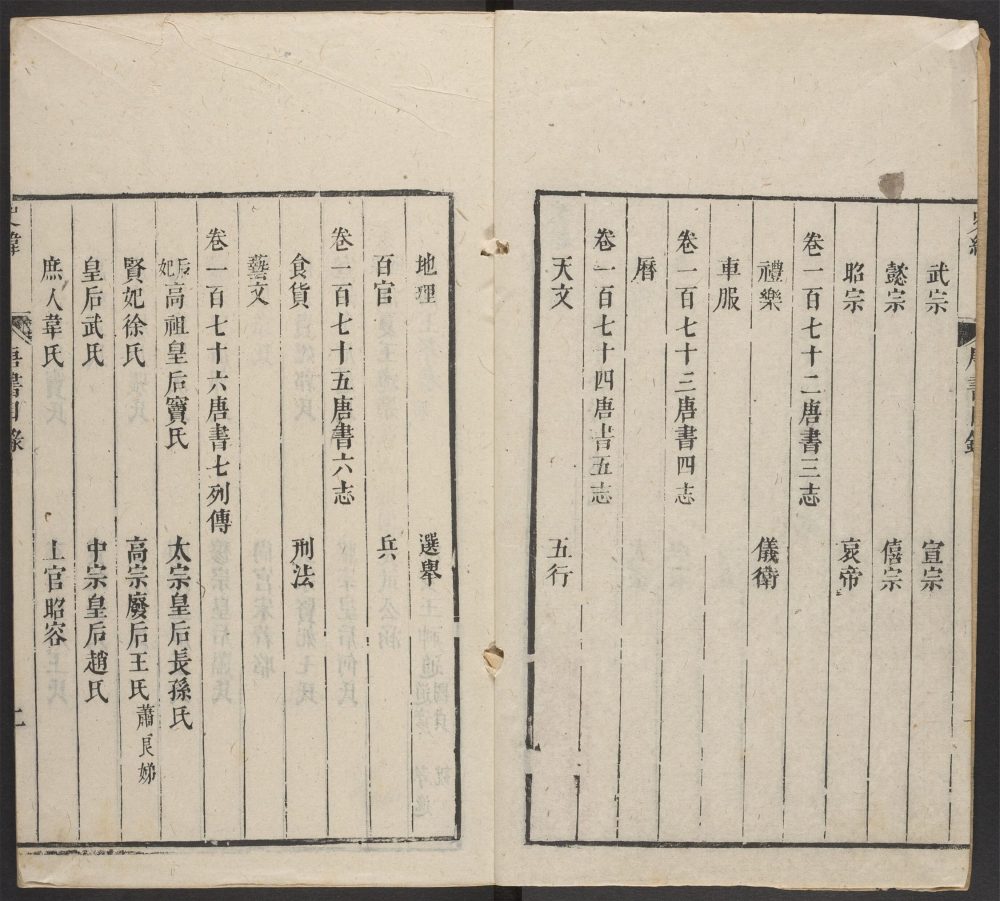 武宗 宣宗
懿宗 僖宗
昭宗 哀帝
卷一百七十二唐書三志
禮樂 儀衛
車服
卷一百七十三唐書四志
曆
卷一百七十四唐書五志
天文 五行
地理 選舉
百官 兵
卷一百七十五唐書六志
食貨 刑法
藝文
卷一百七十六唐書七列傳
后妃高祖皇后竇氏 太宗皇后長孫氏
賢妃徐氏 高宗廢后王氏蕭良娣
皇后武氏 中宗皇后趙氏
庶人韋氏 上官昭容
史緯 唐書目錄